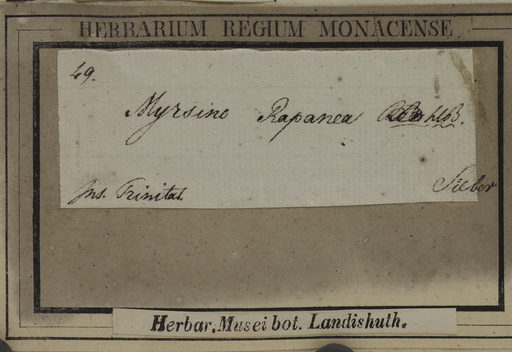 HERBARIUM REGIUM MONACENSE
49.
Myrsine Rapanea
Ins. Trinitat. Sieber
Herbar. Musei bot. Landishuth.